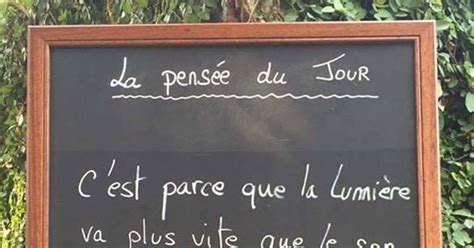 La pensée du Jour
C'est parce que la Lumière
va plus vite que le son